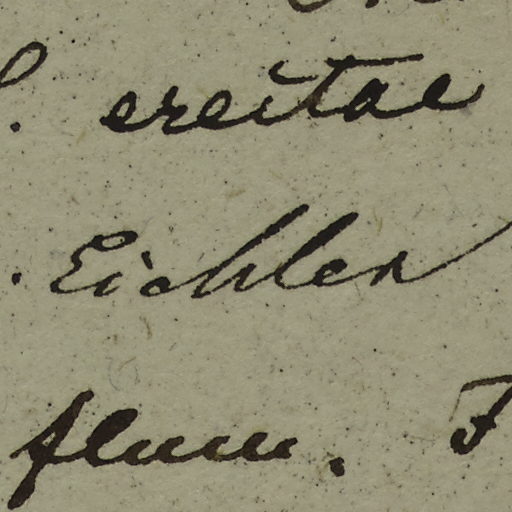 erectae
Eichler
flum. F